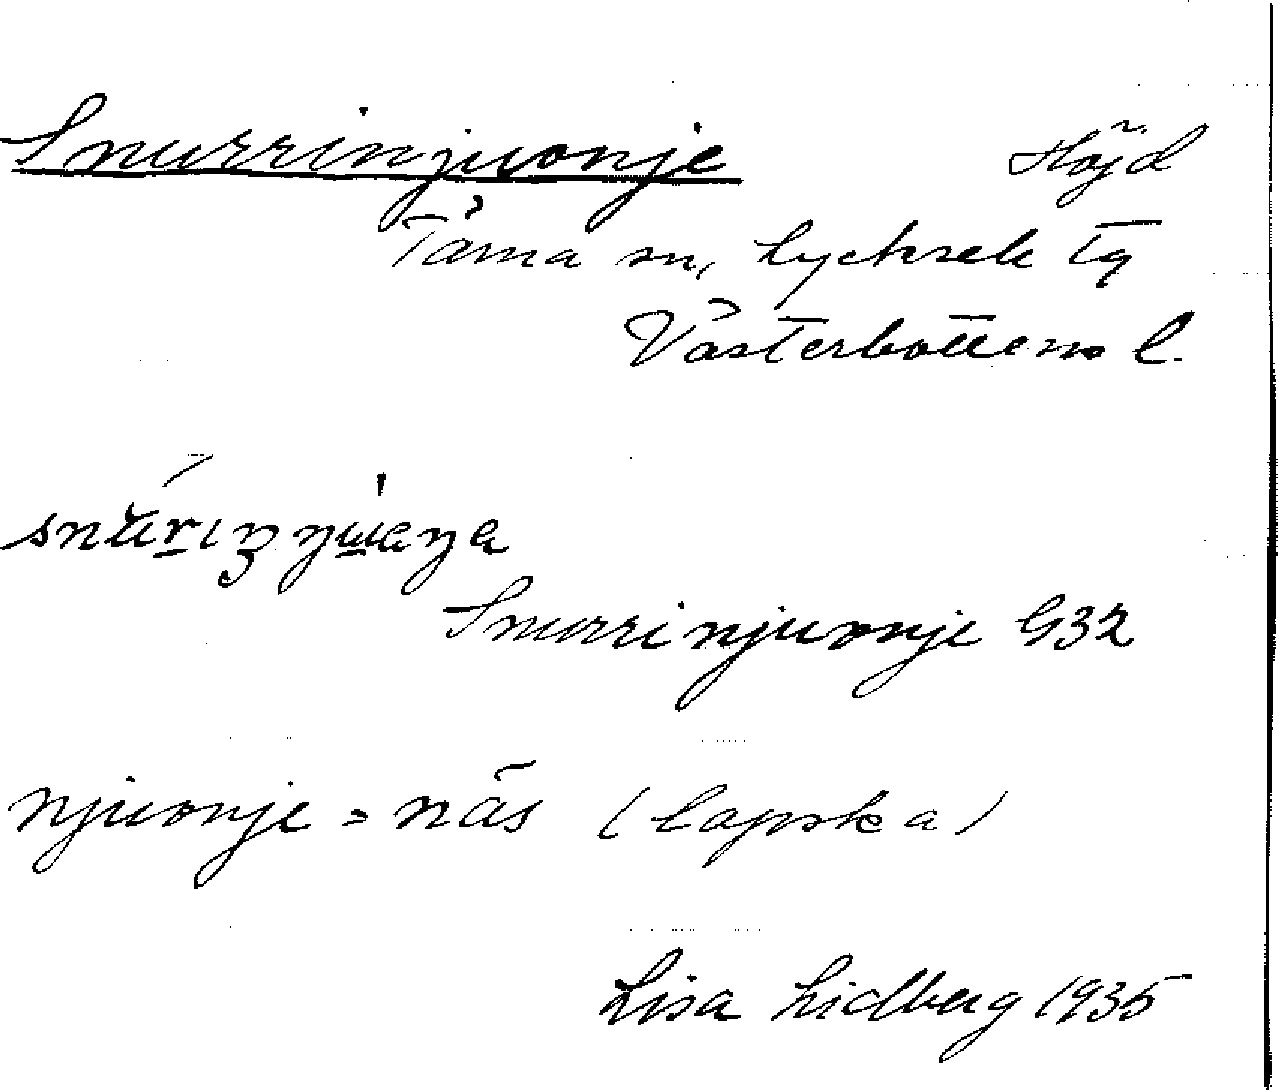 Snurrinjuonje Höjd
Tärna sn, Lycksele tg
Västerbottens l.
Snurrinjuonje G32
njuonje = näs (lapska)
Lisa Lidberg 1935